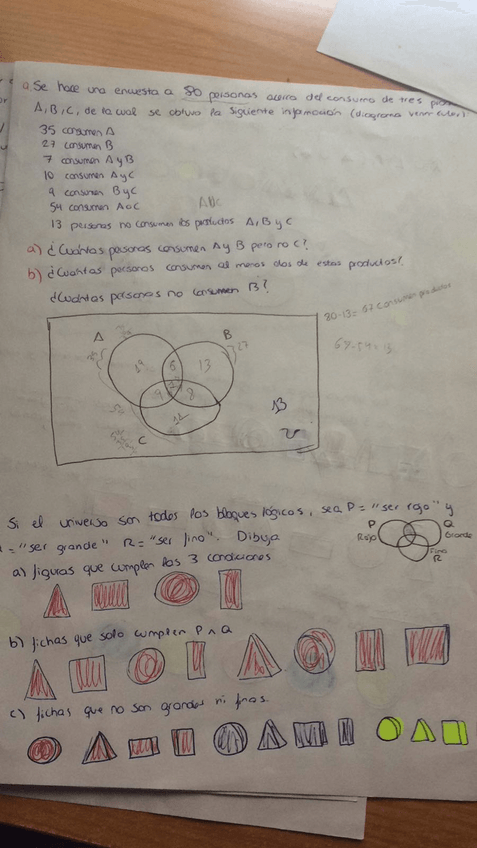 a. Se hace una encuesta a 80 personas acerca del consumo de tres
A, B, C, de la cual se obtuvo la siguiente información (diagrama venn euler):
35 consumen A
27 consumen B
7 consumen A y B
10 consumen A y C
9 consumen B y C
54 consumen A o C
13 personas no consumen los productos A, B y C
a) ¿Cuántas personas consumen A y B pero no C?
b) ¿Cuántas personas consumen al menos dos de estos productos?
¿Cuántas personas no consumen B?
80-13=67 consumen
A
B
27
19
6
13
1
9
8
C
13
U
Si el universo son todos los bloques lógicos, sea P= "ser rojo" y
= "ser grande" R= "ser fino". Dibuja
P
Q
Rojo
Grande
Fino
R
a) figuras que cumplen las 3 condiciones
b) fichas que solo cumplen P ∧ Q
c) fichas que no son grandes ni finas.